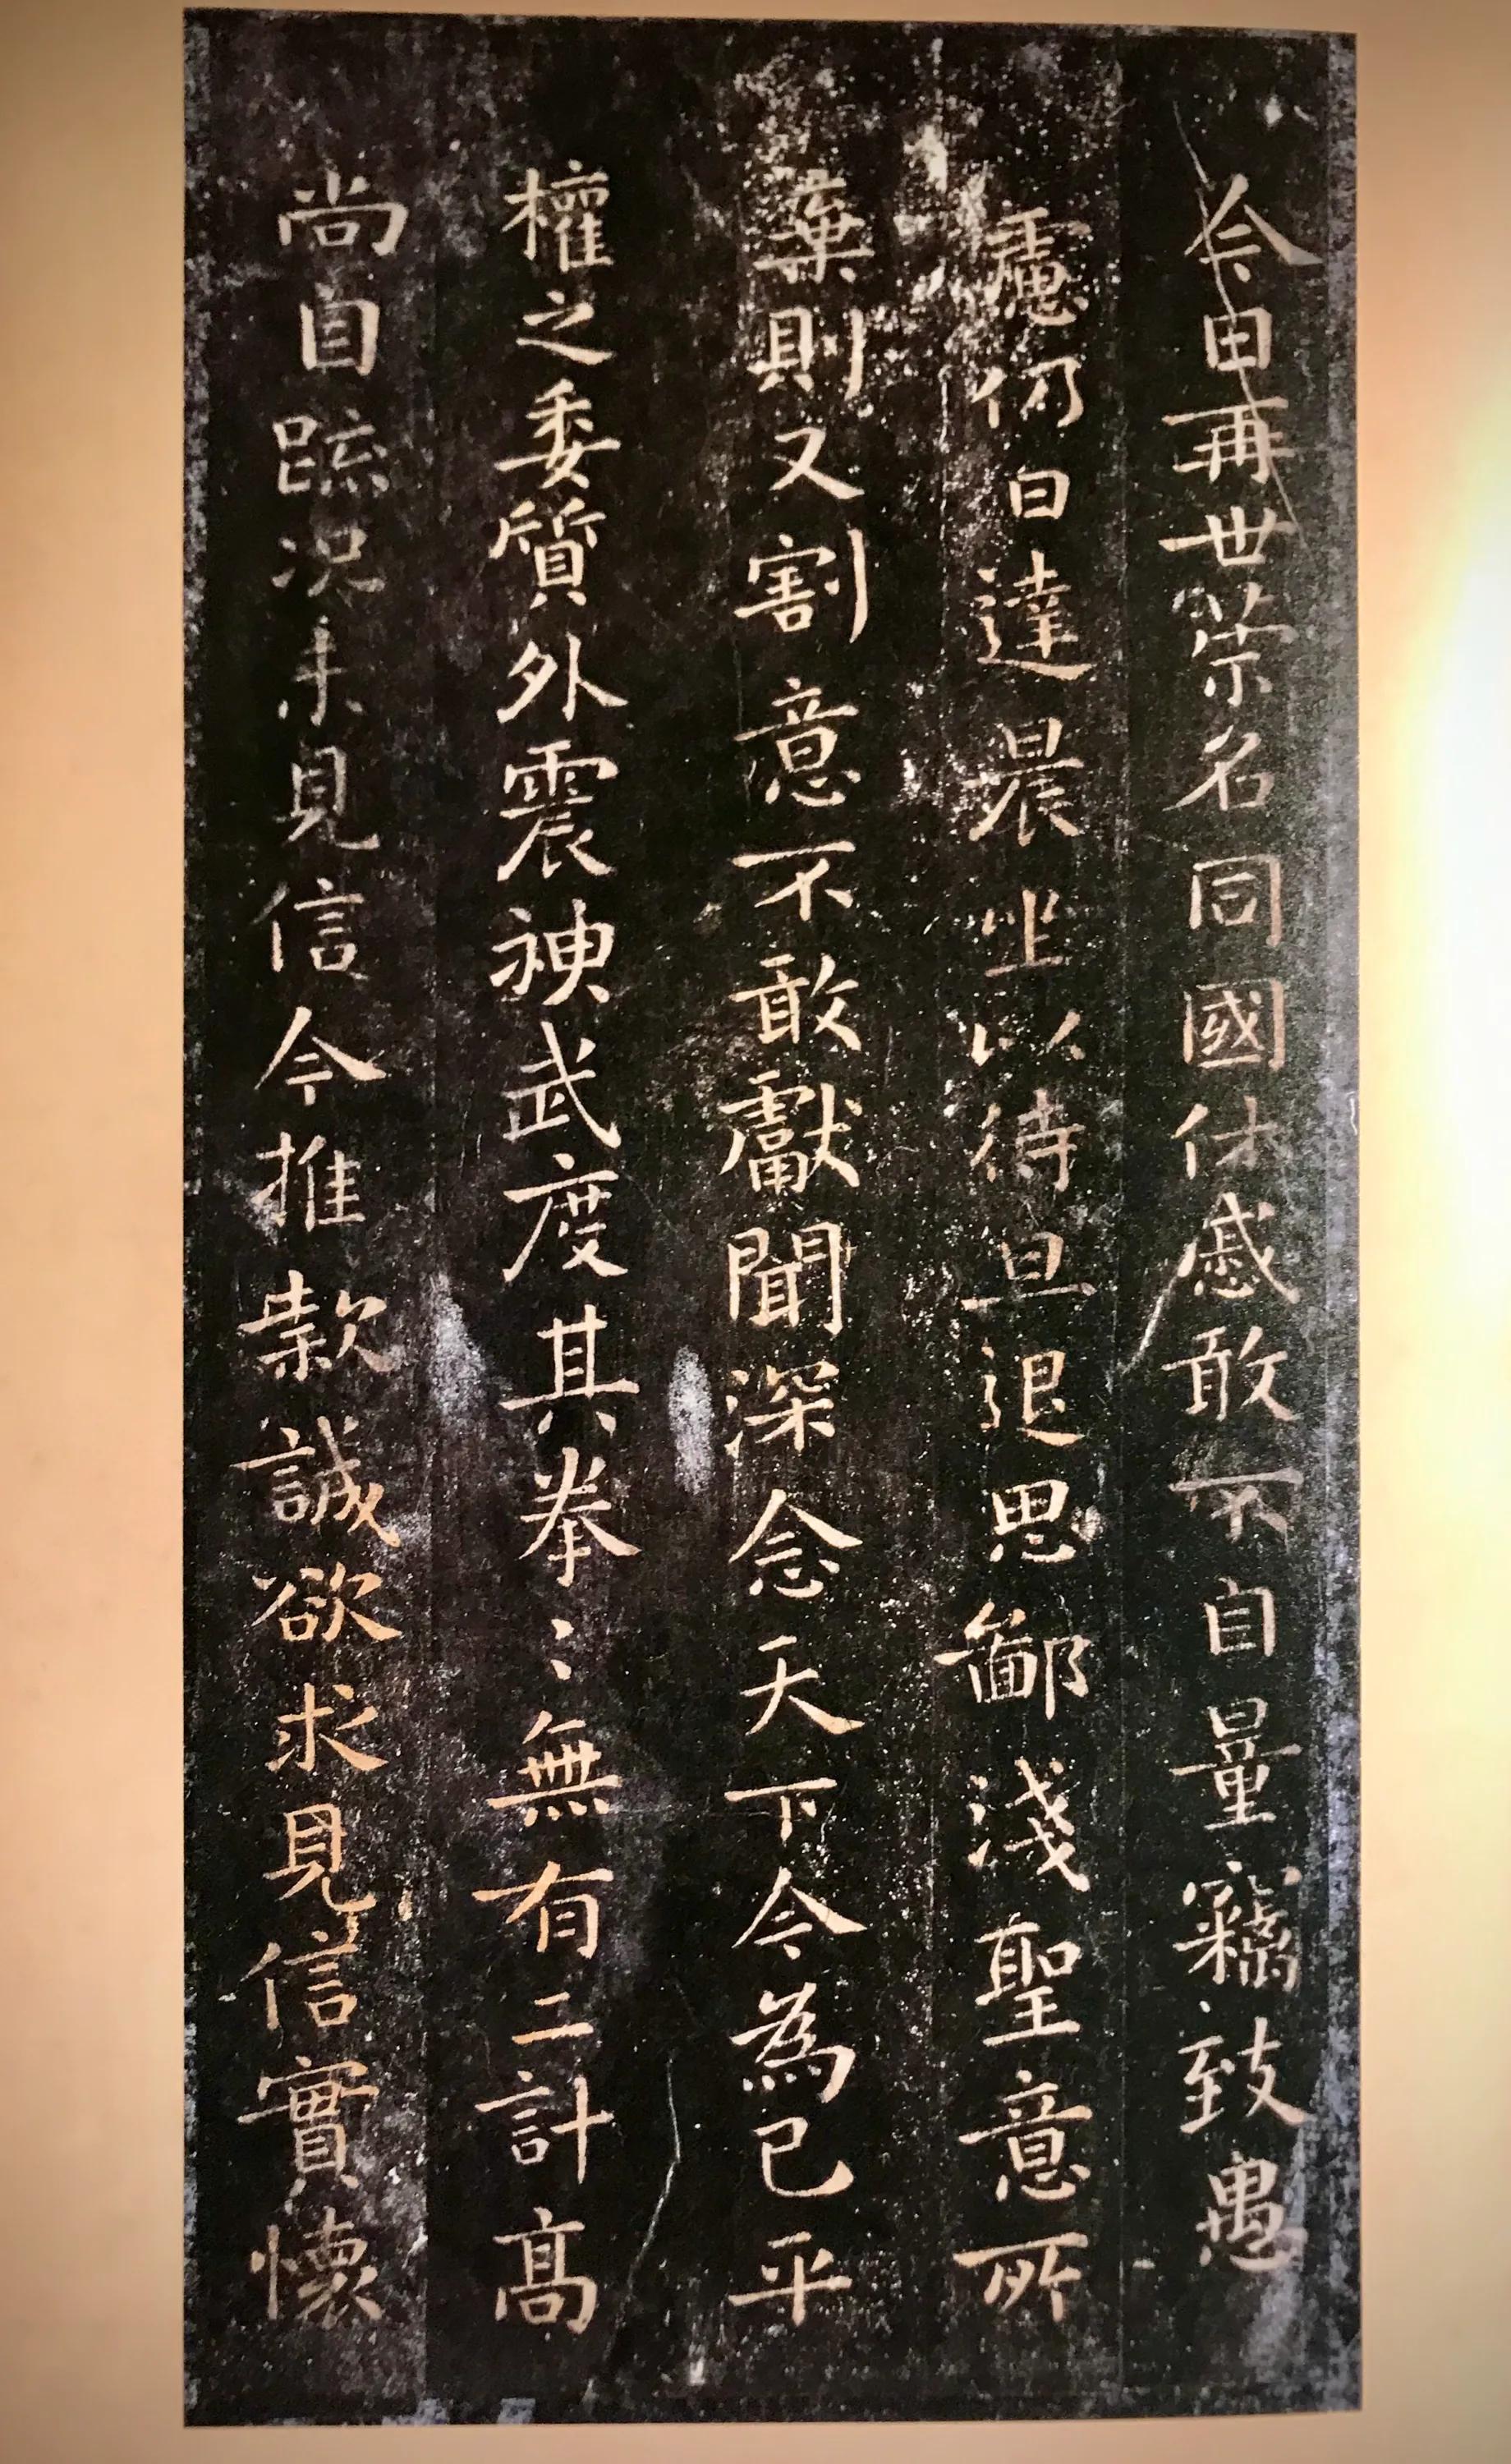 今由再世荣名同國休慼敢不自量竊致愚
慮仍日達晨坐以待旦退思鄙淺聖意所
棄則又割意不敢獻聞深念天下今為已平
權之委質外震神武度其拳〻無有二計高
尚自疏況未見信今推款誠欲求見信實懷